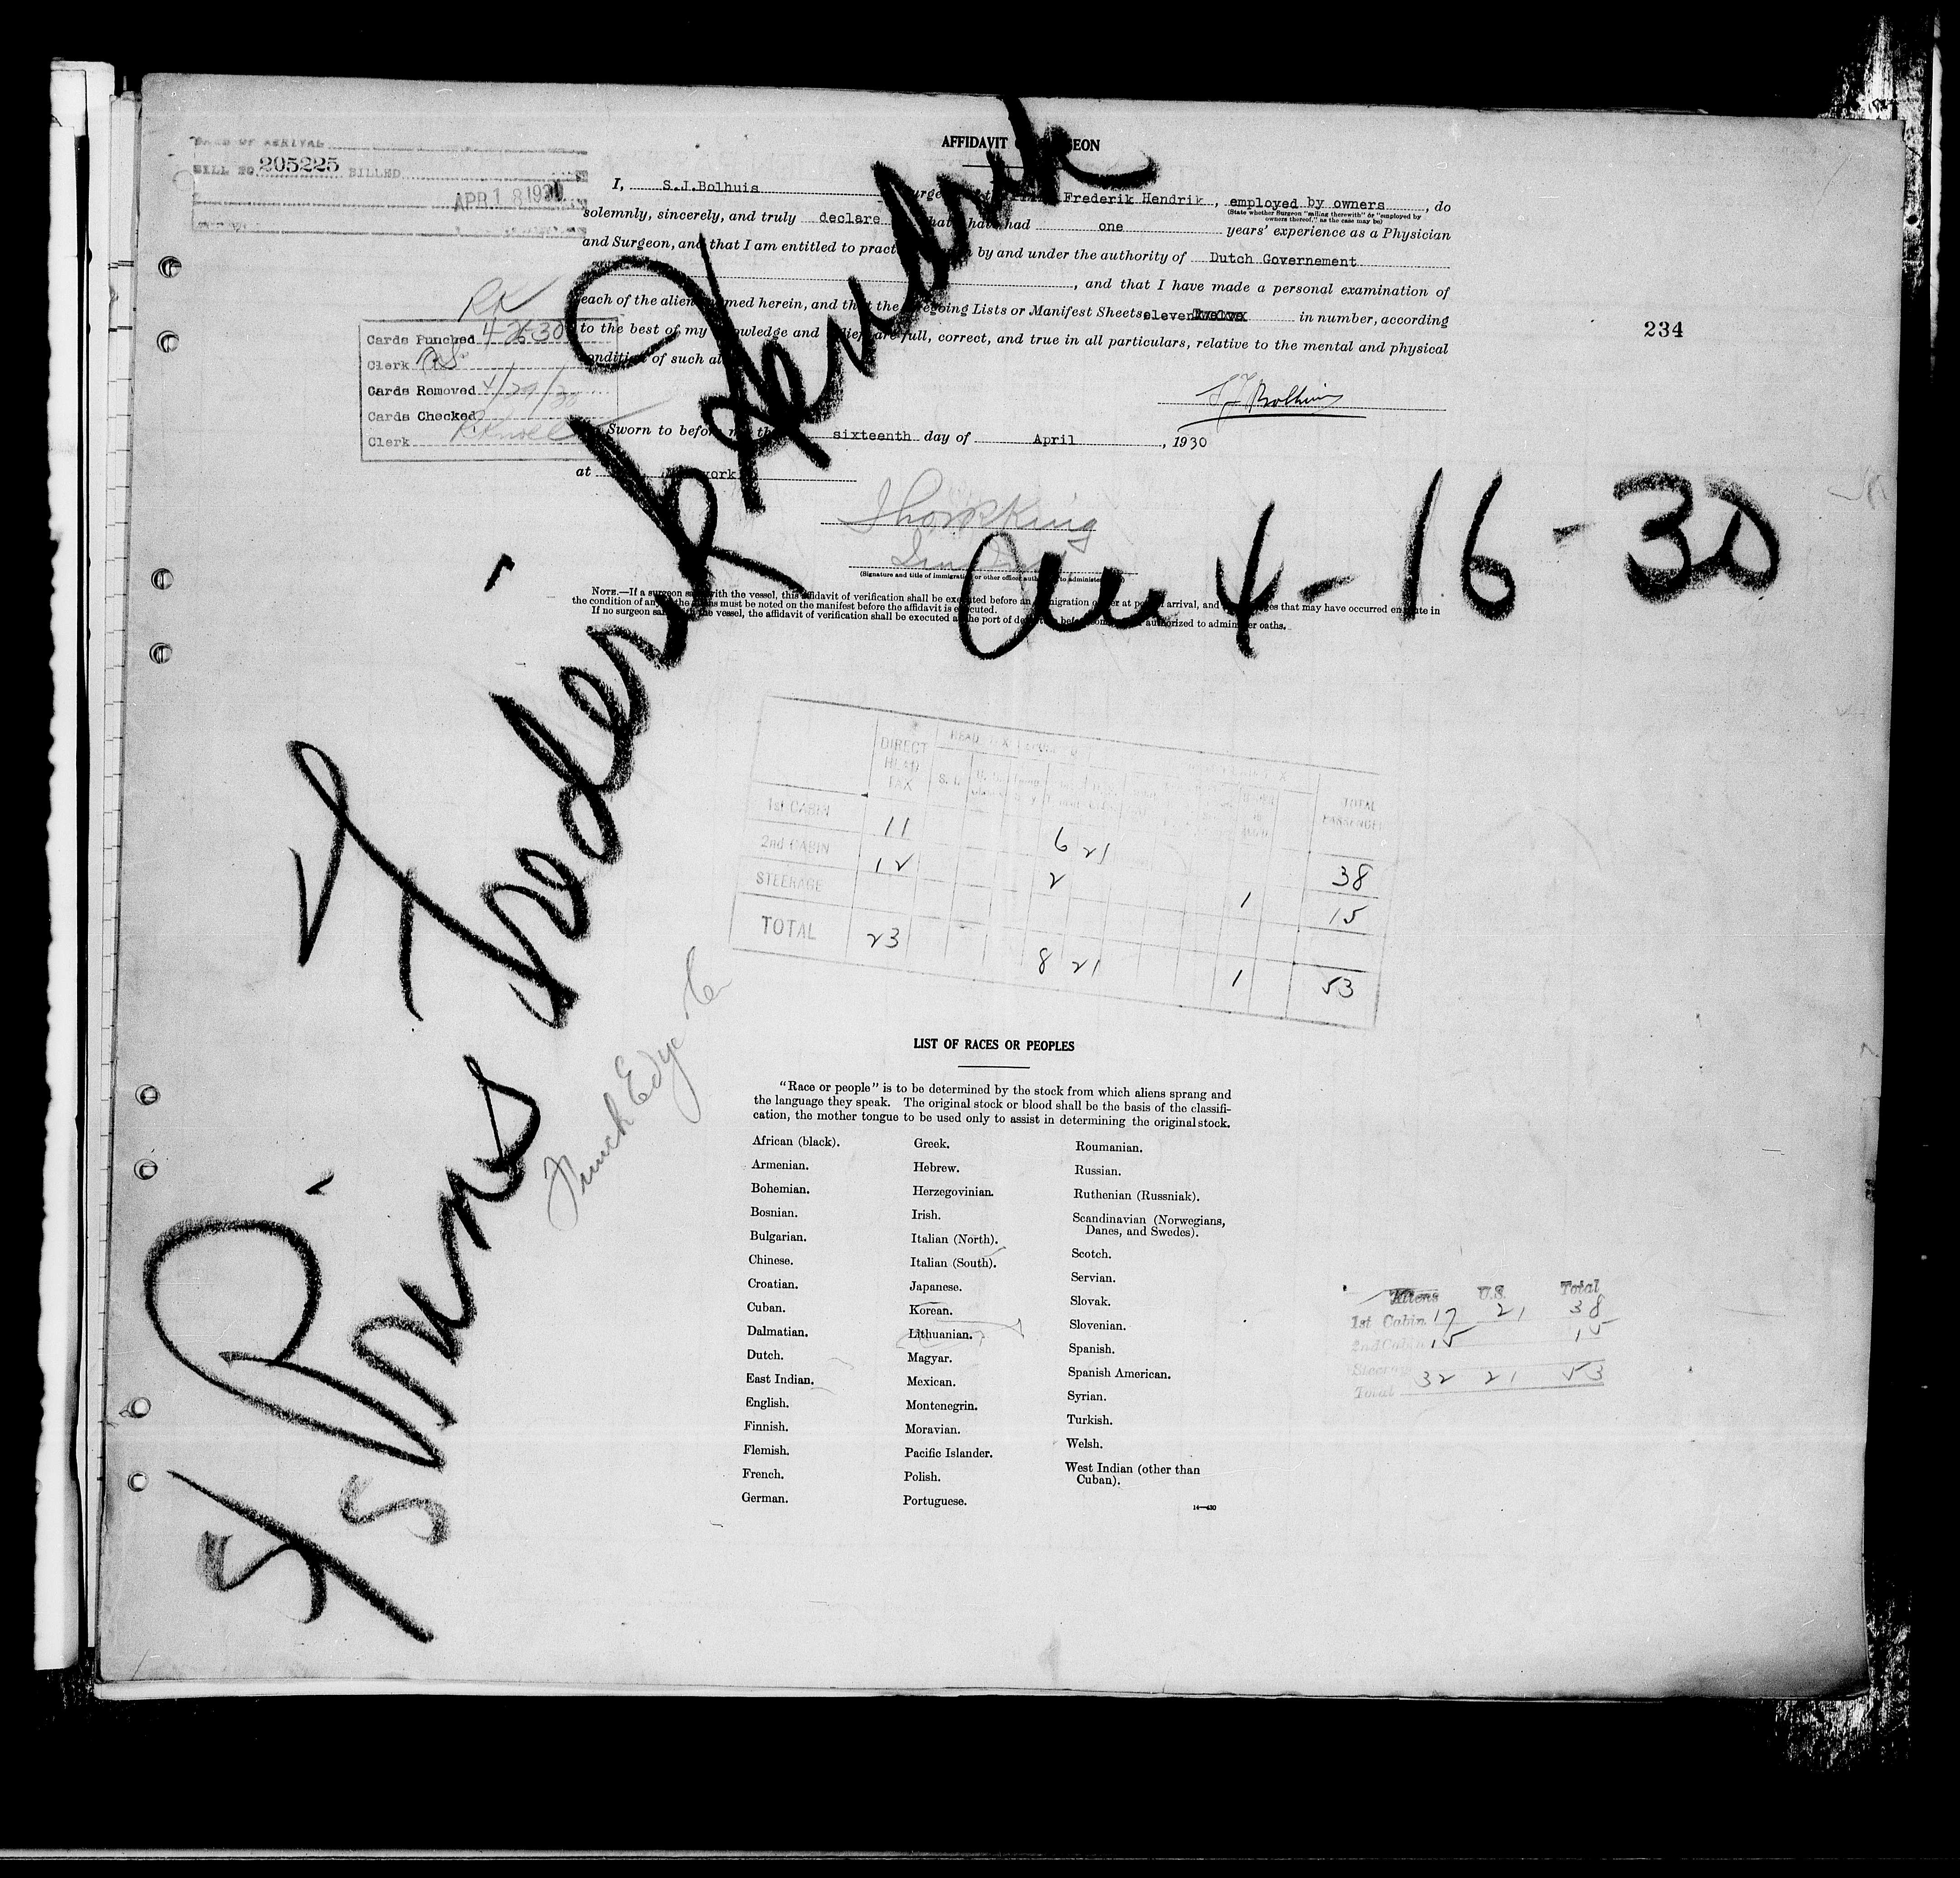 AFFIDAVIT
234
BILL NO. 205225 BILLED
APR 18 1930
I, S.J.Bolhuis Frederik Hendrik, employed by owners, do
(State whether Surgeon "sailing therewith" or "employed by
owners thereof," as the case may be)
solemnly, sincerely, and truly declare had one years' experience as a Physician
and Surgeon, and that I am entitled to by and under the authority of Dutch Governement
, and that I have made a personal examination of
each of the herein, and that the Lists or Manifest Sheets, eleven twelve in number, according
to the best of my and full, correct, and true in all particulars, relative to the mental and physical
condition of such
Cards Punched 4-26-30
Clerk
Cards Removed 4/29/30
Cards Checked
Clerk
S J Bolhuis
Sworn to before sixteenth day of April, 1930
at york
(Signature and title of immigration or other officer
NOTE.—If a surgeon with the vessel, this affidavit of verification shall be executed before an arrival, and that may have occurred en route in
the condition of any must be noted on the manifest before the affidavit is executed.
If no surgeon the vessel, the affidavit of verification shall be executed at the port of authorized to administer oaths.
S/S Prins Frederik Hendrik
4-16-30
Funch Edye Co
DIRECT HEAD TAX
TOTAL PASSENGERS
1st CABIN 11 6 21 38
2nd CABIN 12 2 1 15
STEERAGE
TOTAL 23 8 21 1 53
LIST OF RACES OR PEOPLES
"Race or people" is to be determined by the stock from which aliens sprang and
the language they speak. The original stock or blood shall be the basis of the classifi-
cation, the mother tongue to be used only to assist in determining the original stock.
African (black).
Armenian.
Bohemian.
Bosnian.
Bulgarian.
Chinese.
Croatian.
Cuban.
Dalmatian.
Dutch.
East Indian.
English.
Finnish.
Flemish.
French.
German.
Greek.
Hebrew.
Herzegovinian.
Irish.
Italian (North).
Italian (South).
Japanese.
Korean.
Lithuanian.
Magyar.
Mexican.
Montenegrin.
Moravian.
Pacific Islander.
Polish.
Portuguese.
Roumanian.
Russian.
Ruthenian (Russniak).
Scandinavian (Norwegians,
Danes, and Swedes).
Scotch.
Servian.
Slovak.
Slovenian.
Spanish.
Spanish American.
Syrian.
Turkish.
Welsh.
West Indian (other than
Cuban).
14—430
Aliens U.S. Total
1st Cabin 17 21 38
2nd Cabin 15 15
Steerage
Total 32 21 53